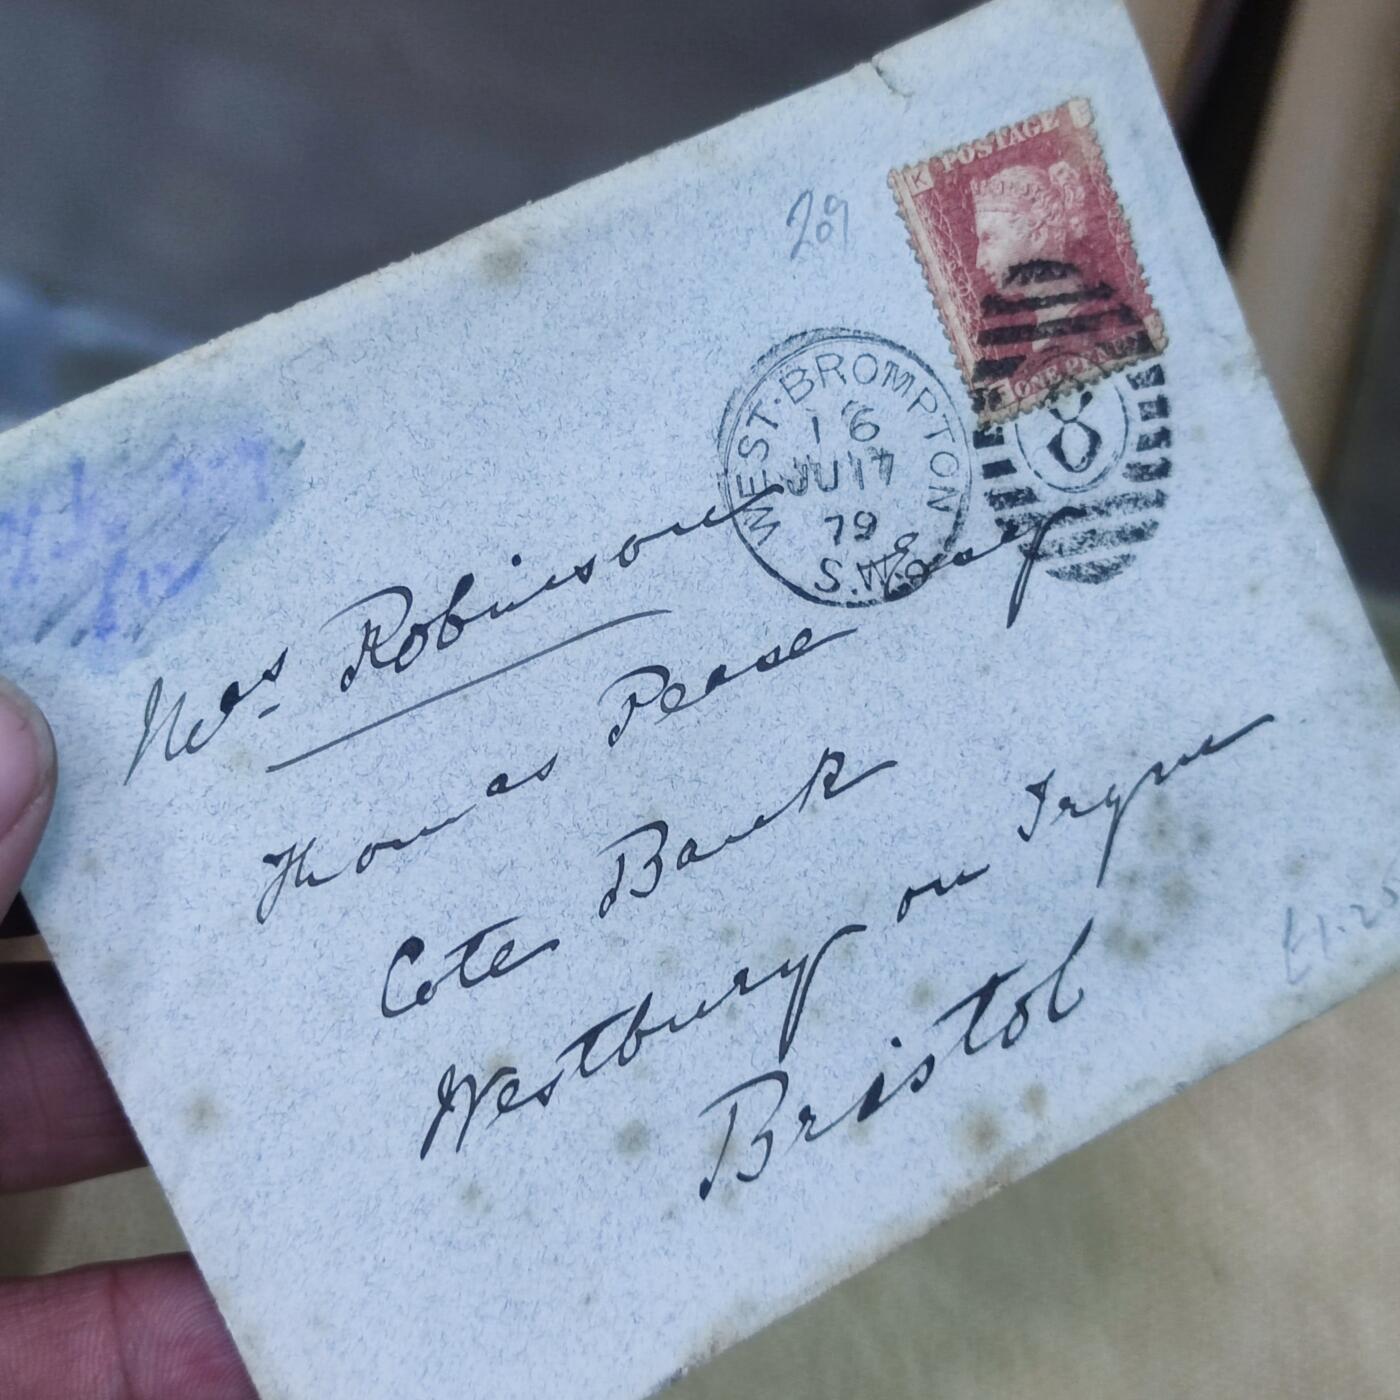 K POSTAGE E
ONE PENNY
E
209
WEST·BROMPTON
16
JU17
79
S.W.
8
Mrs Robinson
Thomas Pease Esq
Cote Bank
Westbury on Trym
Bristol
£1.25